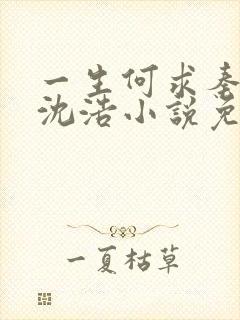 一生何求秦
沈浩小说免
一夏枯草